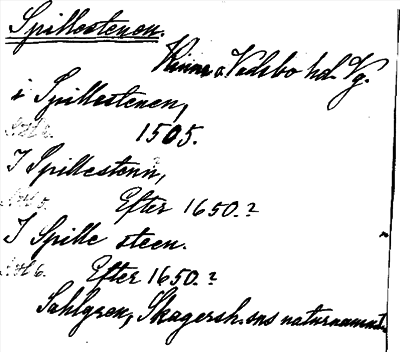 Spillestenen.
Kinne o. Vadsbo hd. Vg.
i Spillestenen,
1505.
I Spillestenn,
Efter 1650.?
I Spille steen.
6. Efter 1650.?
Sahlgren, Skagersh.sns naturnamn.